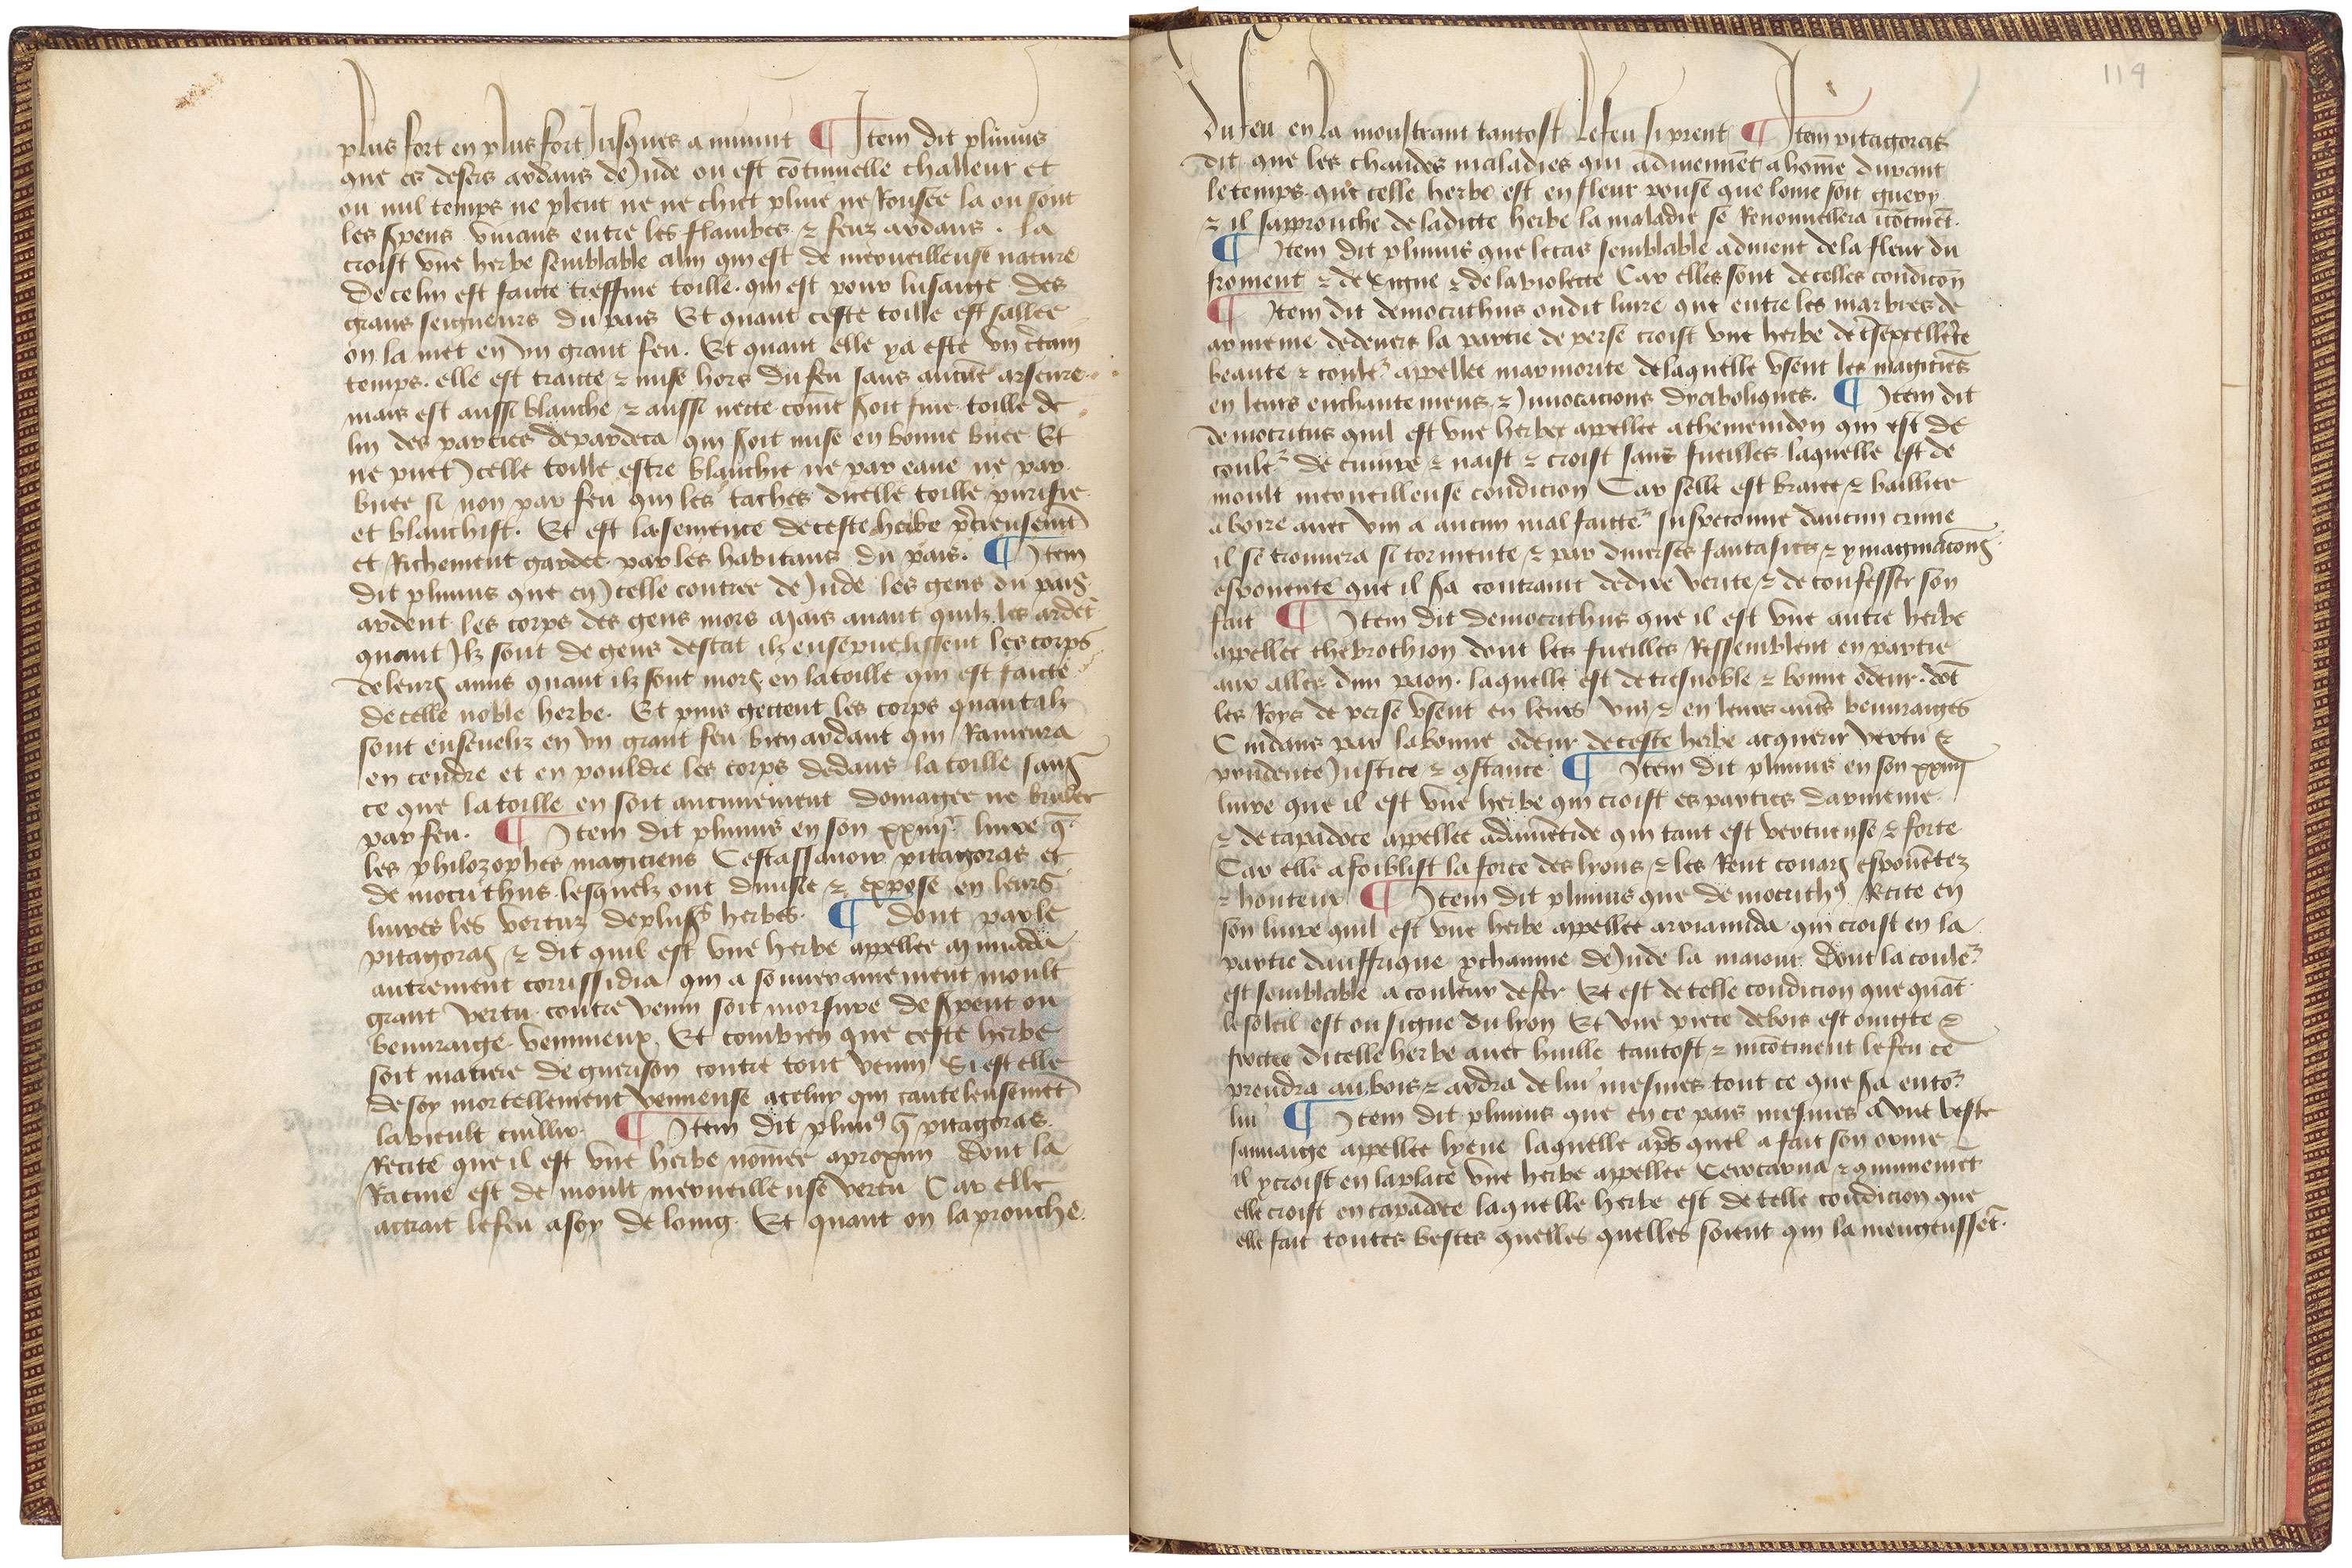 plus fort en plus fort Jusques a minuit ¶ Item dit plinius
que es desers ardans de Jnde ou est cōtinuelle challeur et
ou nul temps ne pleut ne ne chiet pluie ne Rousee la ou sont
les s̄pens viuans entre les flambes ⁊ feuz ardans . la
croist vne herbe semblable alin qui est de merueilleuse nature
De ce lin est faicte tresfine toille . qui est pour lusaige des
grans seigneurs du pais Et quant ceste toille est sallee
on la met en vn grant feu . Et quant elle ya este vn c̄tain
temps . elle est traicte ⁊ mise hors du feu sans aucūe arseure .
mais est aussi blanche ⁊ aussi necte com̄e s̄oit fine toille de
lin des parties depardeca qui s̄oit mise en bonne buee Et
ne puet Jcelle toille estre blanchie ne par eaue ne par
buee si non par feu qui les taches dicelle toille purifie
et blanchist . Et est la semence de ceste herbe p̄cieusem̄t
et Richement gardee par les habitans du pais . ¶ Jtem
dit plinius que en Jcelle contree de Jnde les gens du pais
ardent les corps des gens mors Mais auant quilz les ardēt
quant Jlz sont de gens destat ilz ensepuelissent les corps
de leurs amis quant ilz sont mors en la toille qui est faicte
de celle noble herbe . Et puis gectent les corps quant ilz
sont enseueliz en vn grant feu bien ardant qui Ramenra
en cendre et en pouldre les corps dedans la toille sans
ce que la toille en soit aucunement domagee ne brulee
par feu . ¶ Jtem dit plinius en son xxiiii.e liure q̄
les philozophes magiciens Cestassauoir pitagoras et
democrithus . lesquelz ont diuise ⁊ expose en leurs
liures les vertuz de plus̄s herbes . ¶ dont parle
pitagoras ⁊ dit quil est vne herbe appellee minuada
autrement corrissidia qui a souuerainement moult
grant vertu contre venin soit morsure de s̄pent ou
beuuraige venimeux . Et combien que ceste herbe
soit matiere de guerison contre tout venin Si est elle
de soy mortellement venimeuse a celuy qui cauteleusemēt
la vieult cuillir . ¶ Jtem dit pliniꝰ q̄ pitagoras
Recite que il est vne herbe nom̄ee aproxim dont la
Racine est de moult merueilleuse vertu Car elle
attrait le feu a soy de loing . Et quant on laprouche
du feu en la monstrant tantost le feu si prent ¶ Jtem pitagoras
dit que les chaudes maladies qui aduiennēt a hom̄e durant
le temps que celle herbe est en fleur pouse que lome soit guery
⁊ il sapprouche de ladicte herbe la maladie se Renouuellera icōtinēt .
¶ Jtem dit plinius que le cas semblable aduient de la fleur du
froment ⁊ de vigne ⁊ de la violette Car elles sont de celles condicōn
¶ Jtem dit democrithus ondit liure que entre les marbres de
armenie dedeuers la partie de perse croist vne herbe de t̄sexcellēte
beaute ⁊ coule.r appellee marmorite de laquelle vsent les magiciēs
en leurs enchantemens ⁊ Jnuocacions dyaboliques . ¶ Jtem dit
democritus quil est vne herbe apellee athemenidon qui est de
coule.r de cuiure ⁊ naist ⁊ croist sans fueilles laquelle est de
moult merueilleuse condicion Car selle est braiee ⁊ baillee
a boire auec vin a aucun mal faicte.r suspeconne daucun crime
il se trouuera si tormente ⁊ par diuerses fantasies ⁊ ymaginacōns
espouente que il s̄a contraint de dire verite ⁊ de confesser son
fait ¶ Jtem dit democrithus que il est vne autre herbe
appellee thebrothion dont les fueilles Ressemblent en partie
aux alles dun paon . laquelle est de tresnoble ⁊ bonne odeur . dōt
les Roys de perse vsent en leurs vins ⁊ en leurs autēs beuuraiges
Cuidans par la bonne odeur de ceste herbe acquerir vertu ⁊
prudence Justice ⁊ ꝯstance ¶ Jtem dit plinius en son xxiiii
liure que il est vne herbe qui croist es parties darmenie
⁊ de capadoce appellee adamētide qui tant est vertueuse ⁊ forte
Car elle afoiblist la force des lyons ⁊ les Rent couars espouētez
⁊ honteux ¶ Jtem dit plinius que democrithꝰ Recite en
son liure quil est vne herbe appellee arriamida qui croist en la
partie dauffrique prochainne de Jnde la maiour Dont la coule.r
est semblable a couleur de fer Et est de telle condicion que quāt
le soleil est ou signe du lyon Et vne piece de bois est oingte ⁊
frottee dicelle herbe auec huille tantost ⁊ incōtinent le feu ce
prendra au bois ⁊ ardra de lui mesmes tout ce que s̄a ento.r
lui ¶ Jtem dit plinius que en ce pais mesmes a vne beste
sauuaige appellee lyene laquelle ap̄s quel a fait son orine
il ycroist en la place vne herbe appellee Cercarina ⁊ ꝯmunemēt
elle croist en capadoce laquelle herbe est de telle condicion que
elle fait toutes bestes quelles quelles soient qui la mengeussēt .
114